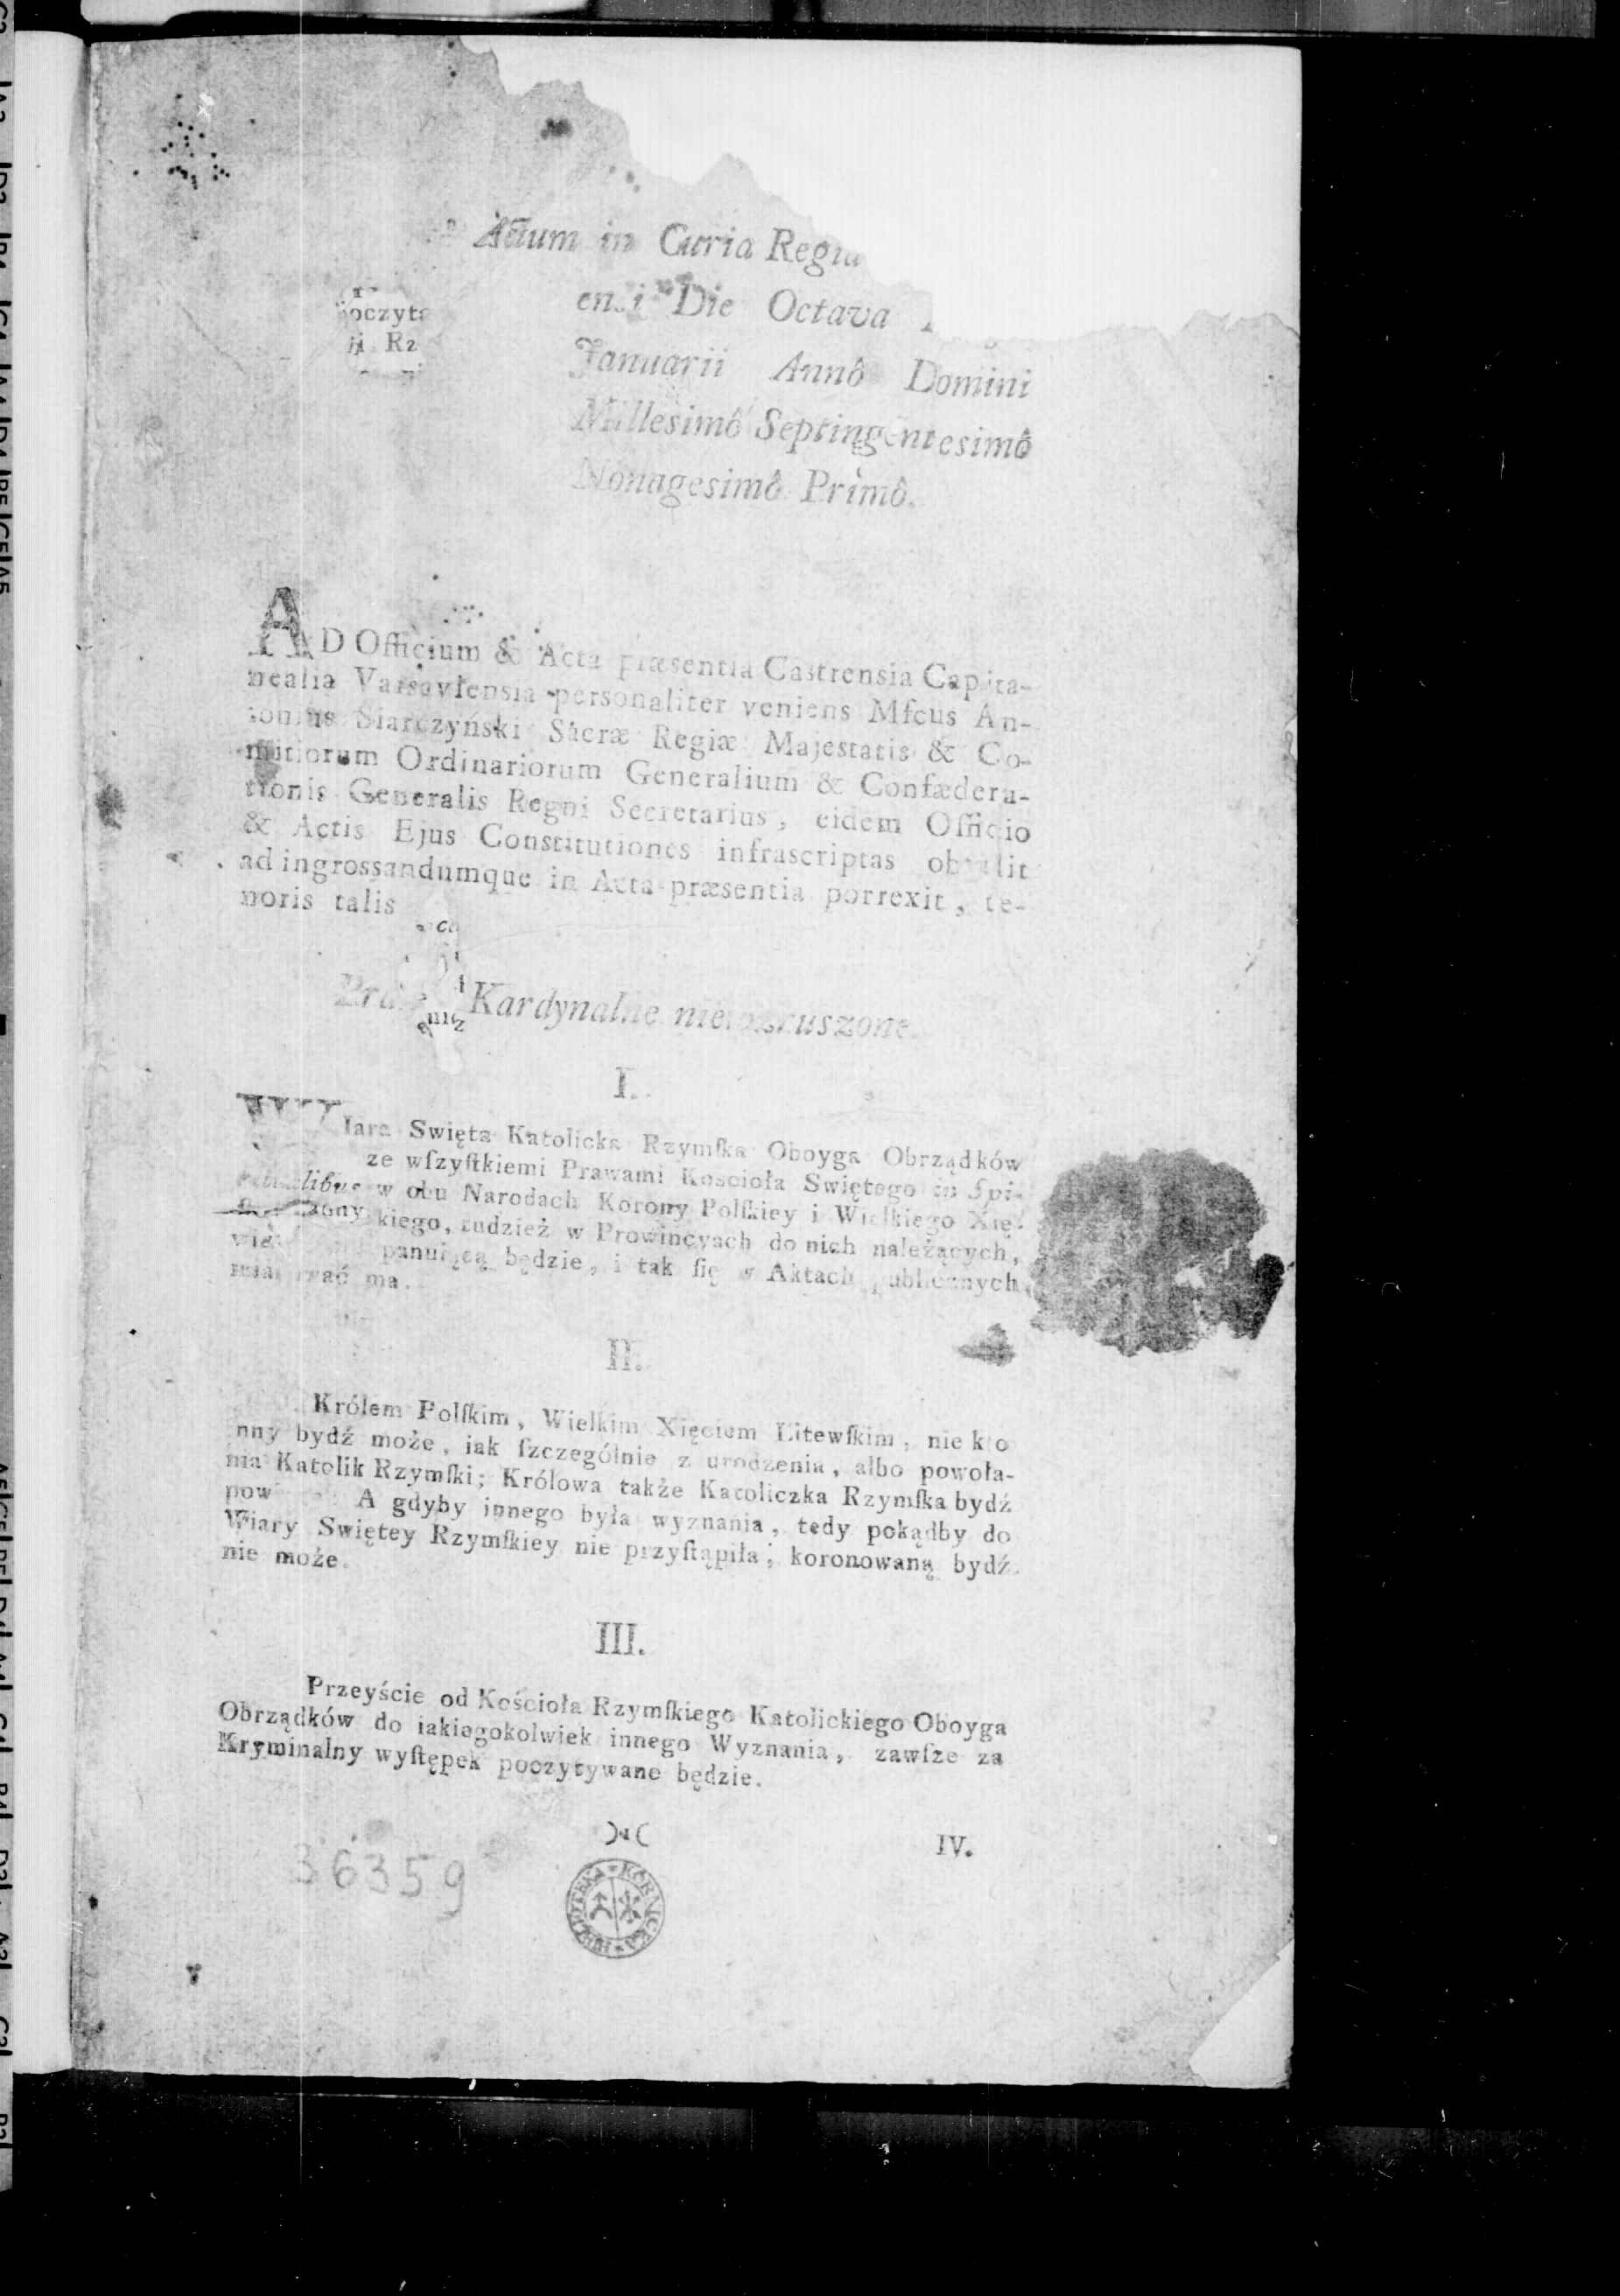 Actum in Curia Regia
Die Octava
Januarii Annô Domini
Millesimô Septingentesimô
Nonagesimô Primô.
AD Officium & Acta præsentia Castrensia Capita-
nealia Varsaviensia personaliter veniens Mfcus An-
tonius Siarczyński Sacræ Regiæ Majestatis & Co-
mitiorum Ordinariorum Generalium & Confædera-
tionis Generalis Regni Secretarius, eidem Officio
& Actis Ejus Constitutiones infrascriptas obtulit
ad ingrossandumque in Acta præsentia porrexit, te-
noris talis
Kardynalne niewzruszone
I.
Wiara Swięta Katolicka Rzymſka Oboyga Obrządków
ze wſzyſtkiemi Prawami Koscioła Swiętego in Spi-
w obu Narodach Korony Polſkiey i Wielkiego Xię-
kiego, tudzież w Prowincyach do nich należących,
panuiącą będzie, i tak ſię w Aktach publicznych
ma.
II.
Królem Polſkim, Wielkim Xięciem Litewſkim, nie kto
inny bydź może, iak ſzczególnie z urodzenia, albo powoła-
nia Katolik Rzymſki; Królowa także Katoliczka Rzymſka bydź
pow A gdyby innego była wyznania, tedy pokądby do
Wiary Swiętey Rzymſkiey nie przyſtąpiła, koronowaną bydź
nie może.
III.
Przeyście od Kościoła Rzymſkiego Katolickiego Oboyga
Obrządków do iakiegokolwiek innego Wyznania, zawſze za
Kryminalny wyſtępek poczytywane będzie.
IV.
36359
BIBLIOTEKA KÓRNICKA